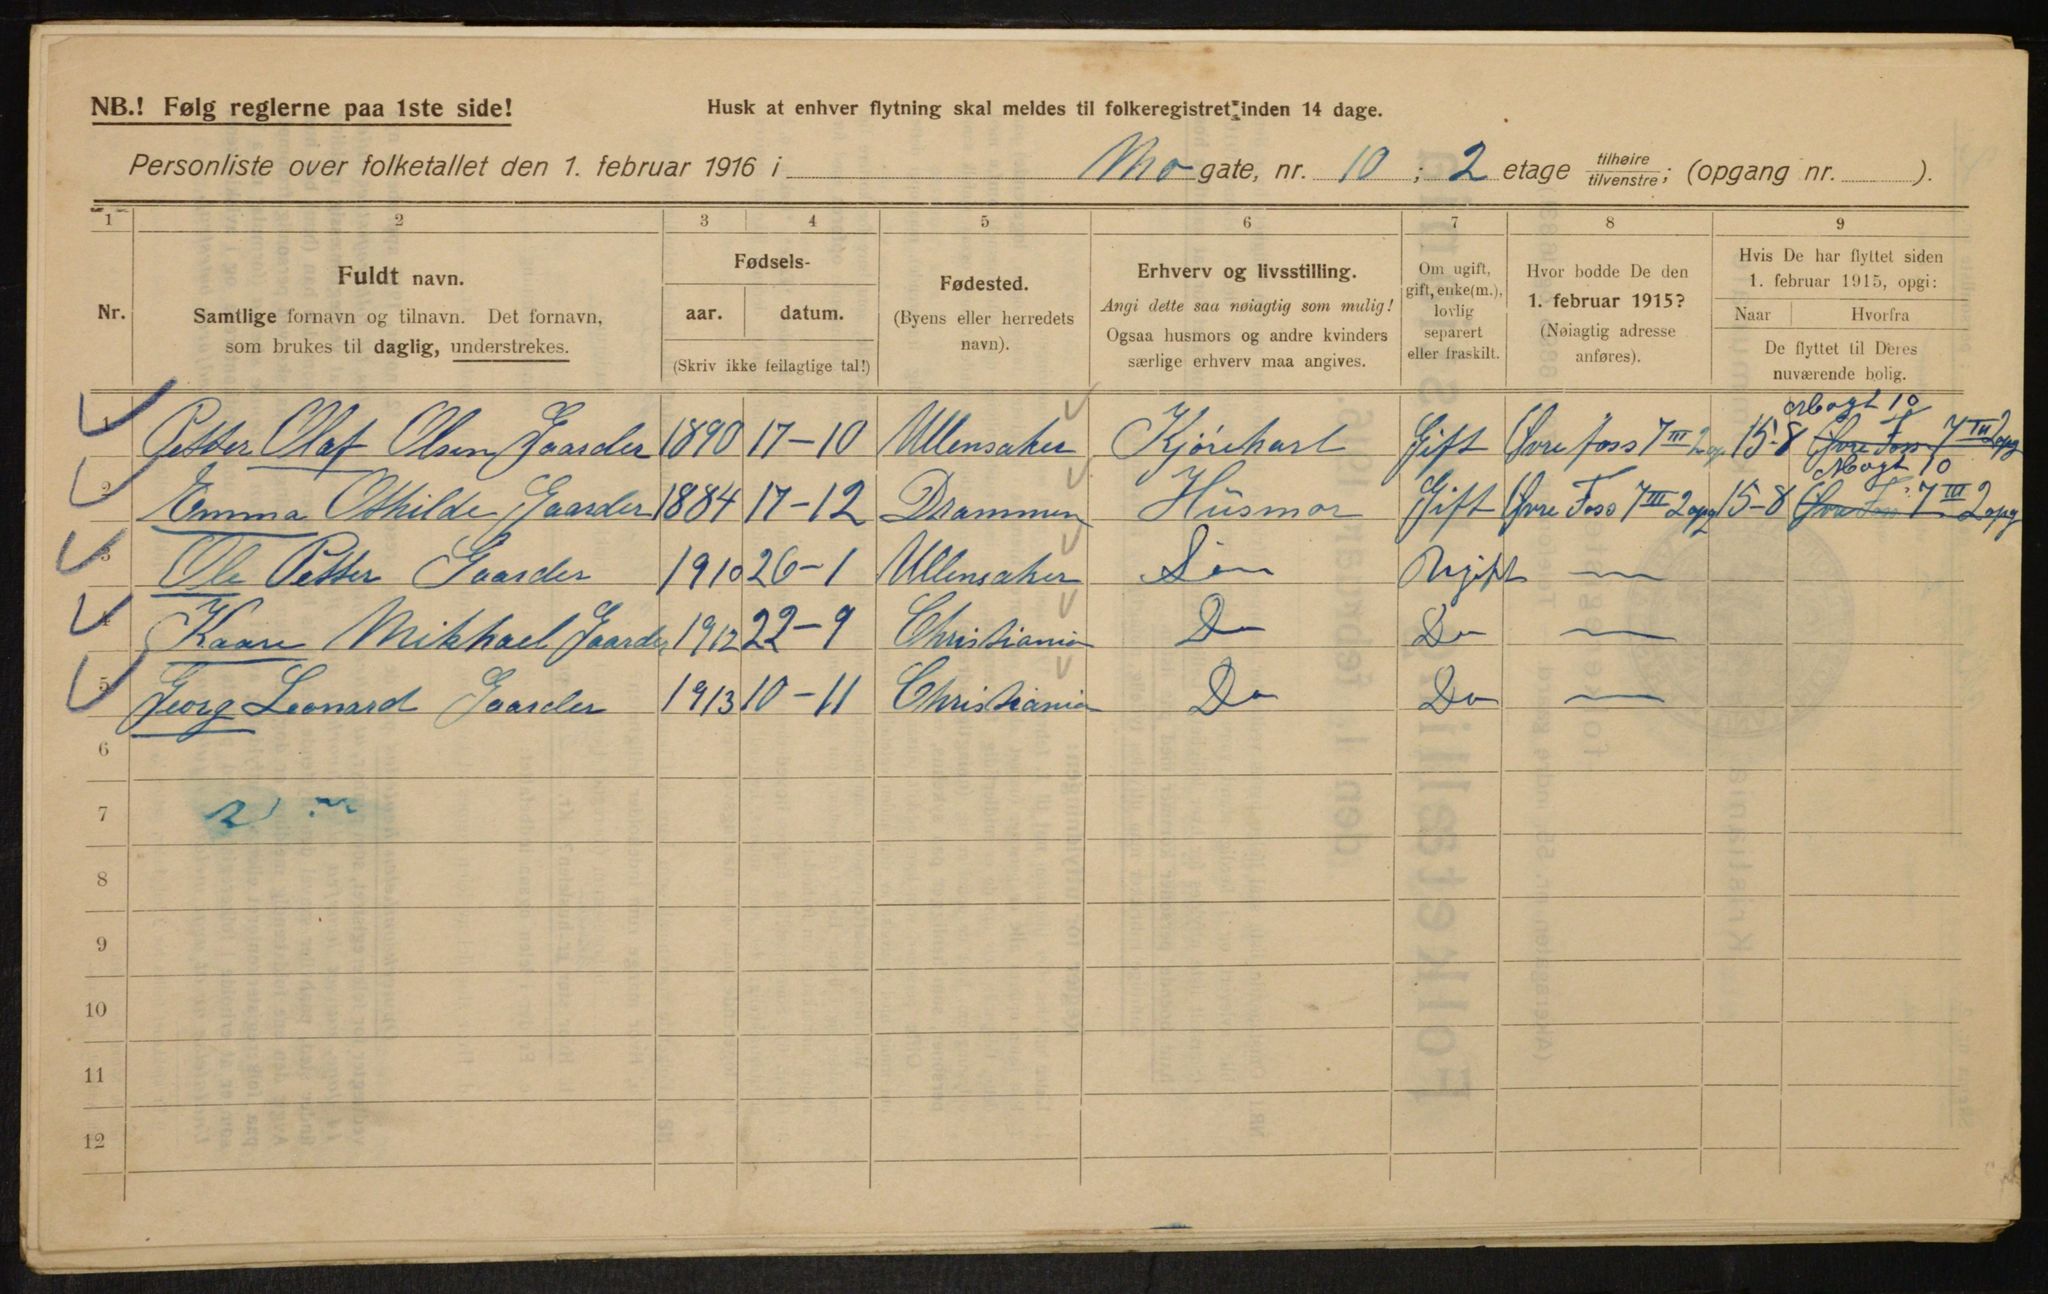 NB.! Følg reglerne paa 1ste side!
Husk at enhver flytning skal meldes til folkeregistret inden 14 dage.
Personliste over folketallet den 1. februar 1916 i Mogate, nr. 10; 2 etage tilhøire tilvenstre; (opgang nr. ).
1 2 3 4 5 6 7 8 9
Nr.
Fuldt navn.
Samtlige fornavn og tilnavn. Det fornavn,
som brukes til daglig, understrekes.
Fødsels-
aar. datum.
(Skriv ikke feilagtige tal!)
Fødested.
(Byens eller herredets
navn).
Erhverv og livsstilling.
Angi dette saa nøiagtig som mulig!
Ogsaa husmors og andre kvinders
særlige erhverv maa angives.
Om ugift,
gift, enke(m.),
lovlig
separert
eller fraskilt.
Hvor bodde De den
1. februar 1915?
(Nøiagtig adresse
anføres).
Hvis De har flyttet siden
1. februar 1915, opgi:
Naar Hvorfra
De flyttet til Deres
nuværende bolig.
Mogt 10
1 Petter Olaf Olsen Gaarder 1890 17-10 Ullensaker Kjørekarl Gift Øvre foss 7 III 2 op 15-8 Øvre Foss 7 III 2 opg
Mogt 10
2 Emma Othilde Gaarder 1884 17-12 Drammen Husmor Gift Øvre Foss 7 III 2 opg 15-8 Øvre Foss 7 III 2 opg
3 Ole Petter Gaarder 1910 26-1 Ullensaker Søn Ugift —
4 Kaare Mikhael Gaarder 1912 22-9 Christiania Do Do —
5 Georg Leonard Gaarder 1913 10-11 Christiania Do Do —
6
7
8
9
10
11
12